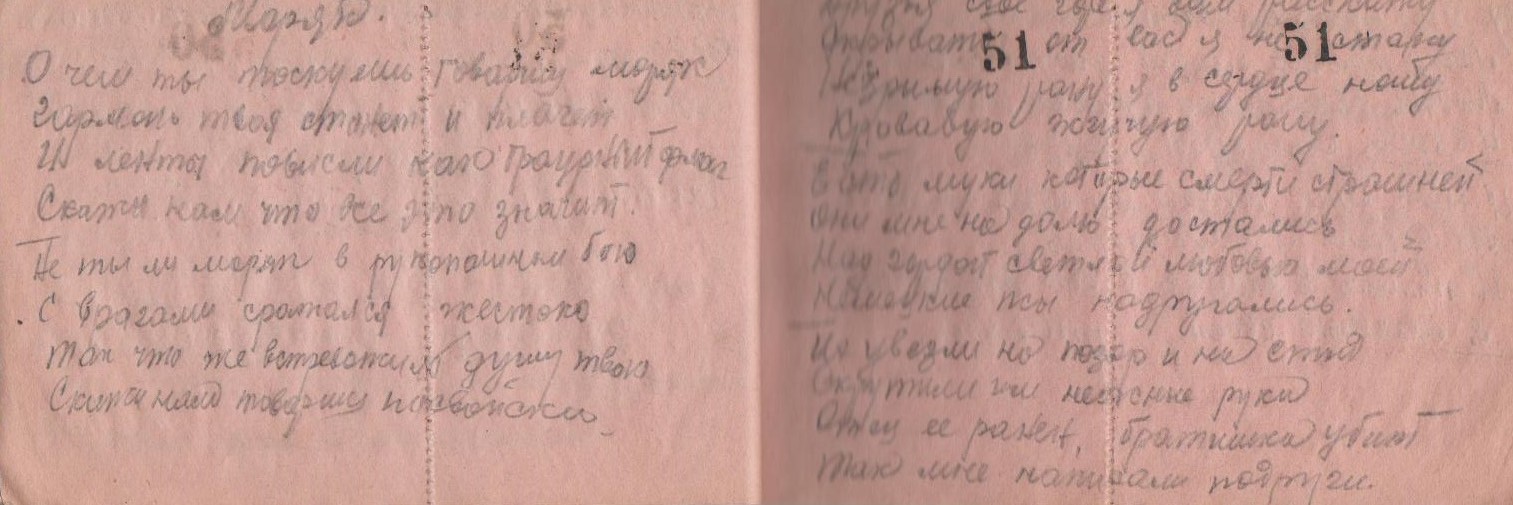 Моряк.
О чем ты тоскуешь товарищ моряк
Гармонь твоя стонет и плачет
И ленты повисли как траурный флаг
Скажи нам что же это значит.
Не ты ли моряк в рукопашном бою
С врагами сражался жестоко
Так что же встревожило душу твою
Скажи нам товарищ
Друзья свое горе я вам расскажу
Скрывать от вас я не стану
51 51
Незримую рану я в сердце ношу
Кровавую жгучую рану.
Есть муки которые смерти страшней
Они мне на долю достались
Над гордой светлой любовью моей
Немецкие псы надругались.
Ее увезли на позор и на стыд
Скрутили ей нежные руки
Отец ее ранен, братишка убит
Так мне написали подруги.